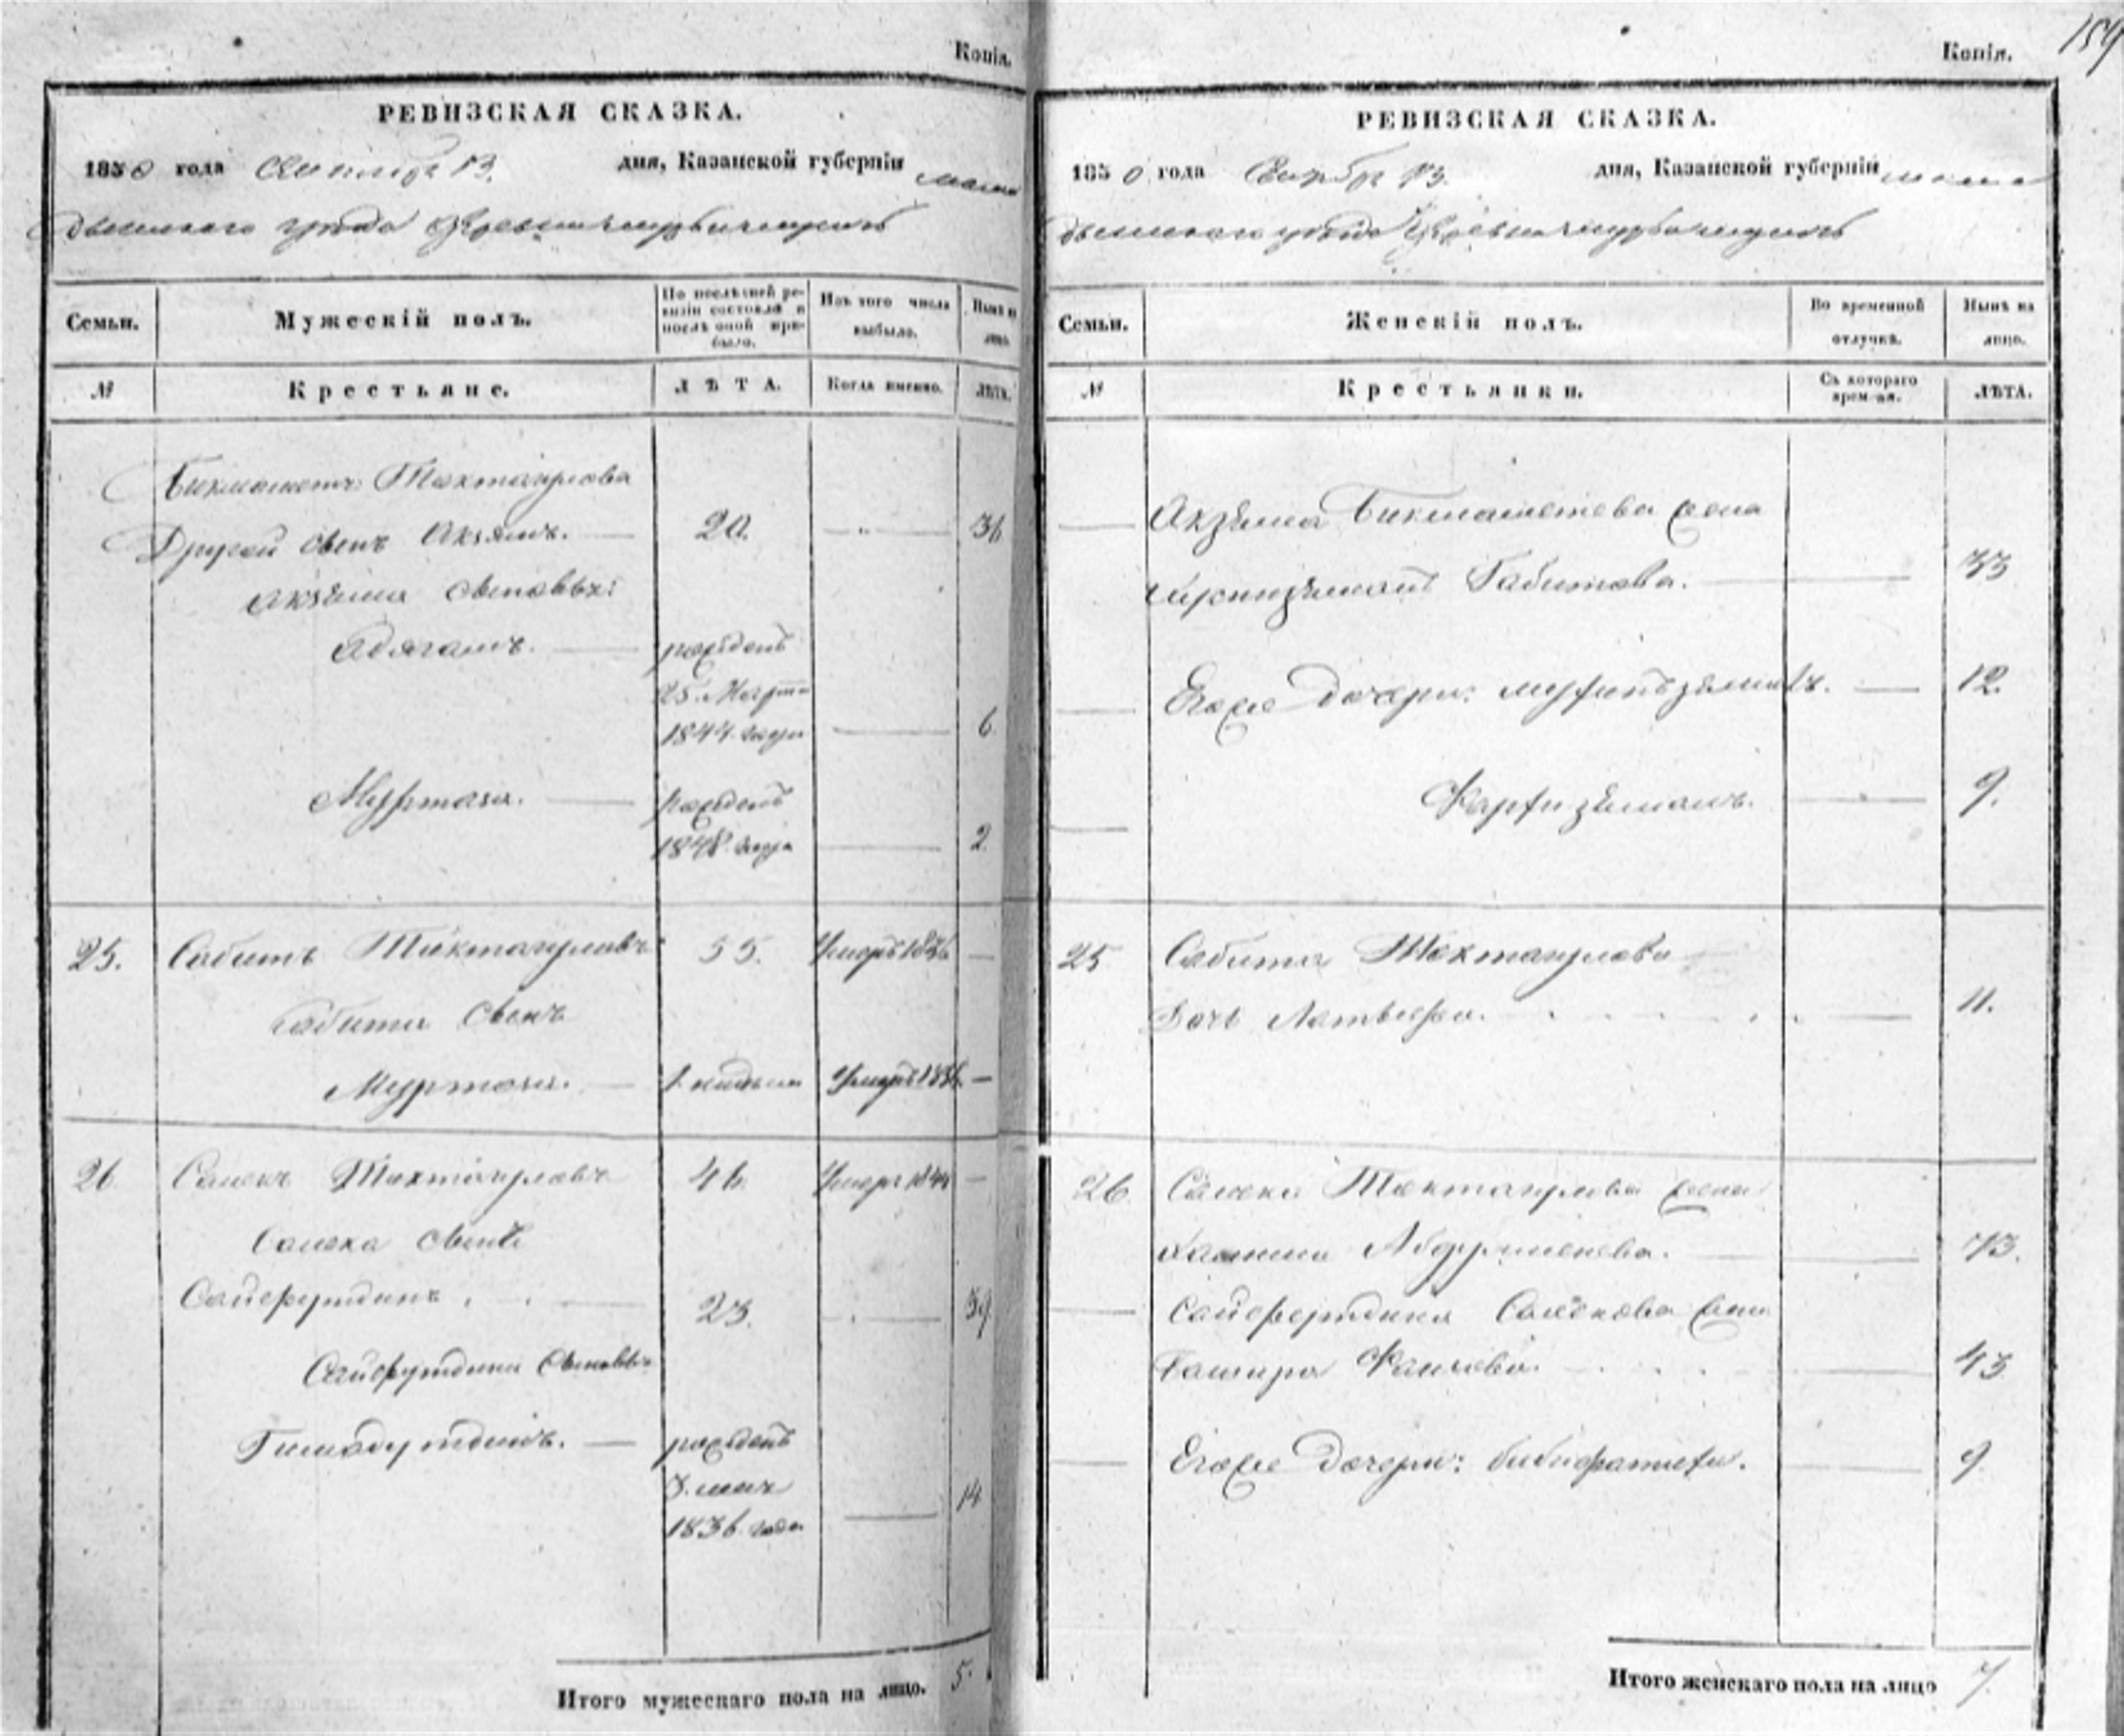 Копія.
РЕВИЗСКАЯ СКАЗКА.
1850 года Сентября 13. дня, Казанской губерніи мама
дышскаго уѣзда
Семьи.
Мужескій полъ.
По послѣдней ре-
визіи состояло и
послѣ оной при-
было.
Изъ того числа
выбыло.
Нынѣ на
лицо.
№
Крестьяне.
ЛѢТА.
Когда именно.
ЛѢТА.
Бикмаметъ Тохтаулова
Другой сынъ Акзямъ. 20. 36
Акзяма сыновья:
Адягамъ. рожденъ
25. Марта
1844 года 6
Муртаза. рожденъ
1848 года 2
25. Сабитъ Тахтауловъ 55. Умеръ 1836 —
Сабита сынъ
Муртаза. 1. недели Умеръ 1836 —
26 Салекъ Тохтауловъ 46. Умеръ 1844 —
Салека сынъ
Сайфутдинъ 23. 39
Сайфутдина сыновья
Гимадутдинъ. рожденъ
3. мая
1836 года 14
Итого мужескаго пола на лицо. 5.
159
Копія.
РЕВИЗСКАЯ СКАЗКА.
1850 года Сентября 13. дня, Казанской губерніи мама
дышскаго уѣзда
Семьи.
Женскій полъ.
Во временной
отлучкѣ.
Нынѣ на
лицо.
№
Крестьянки.
Съ котораго
времени.
ЛѢТА.
Акзяма Бикмаметева жена
Габитова. 33
Егоже дочери: 12.
9.
25 Сабита Тохтаулова
дочь 11.
26 Салека Тохтаулова жена
73.
Сайфутдина Салекова жена
Башира 43
Егоже дочери: 9
Итого женскаго пола на лицо 7.